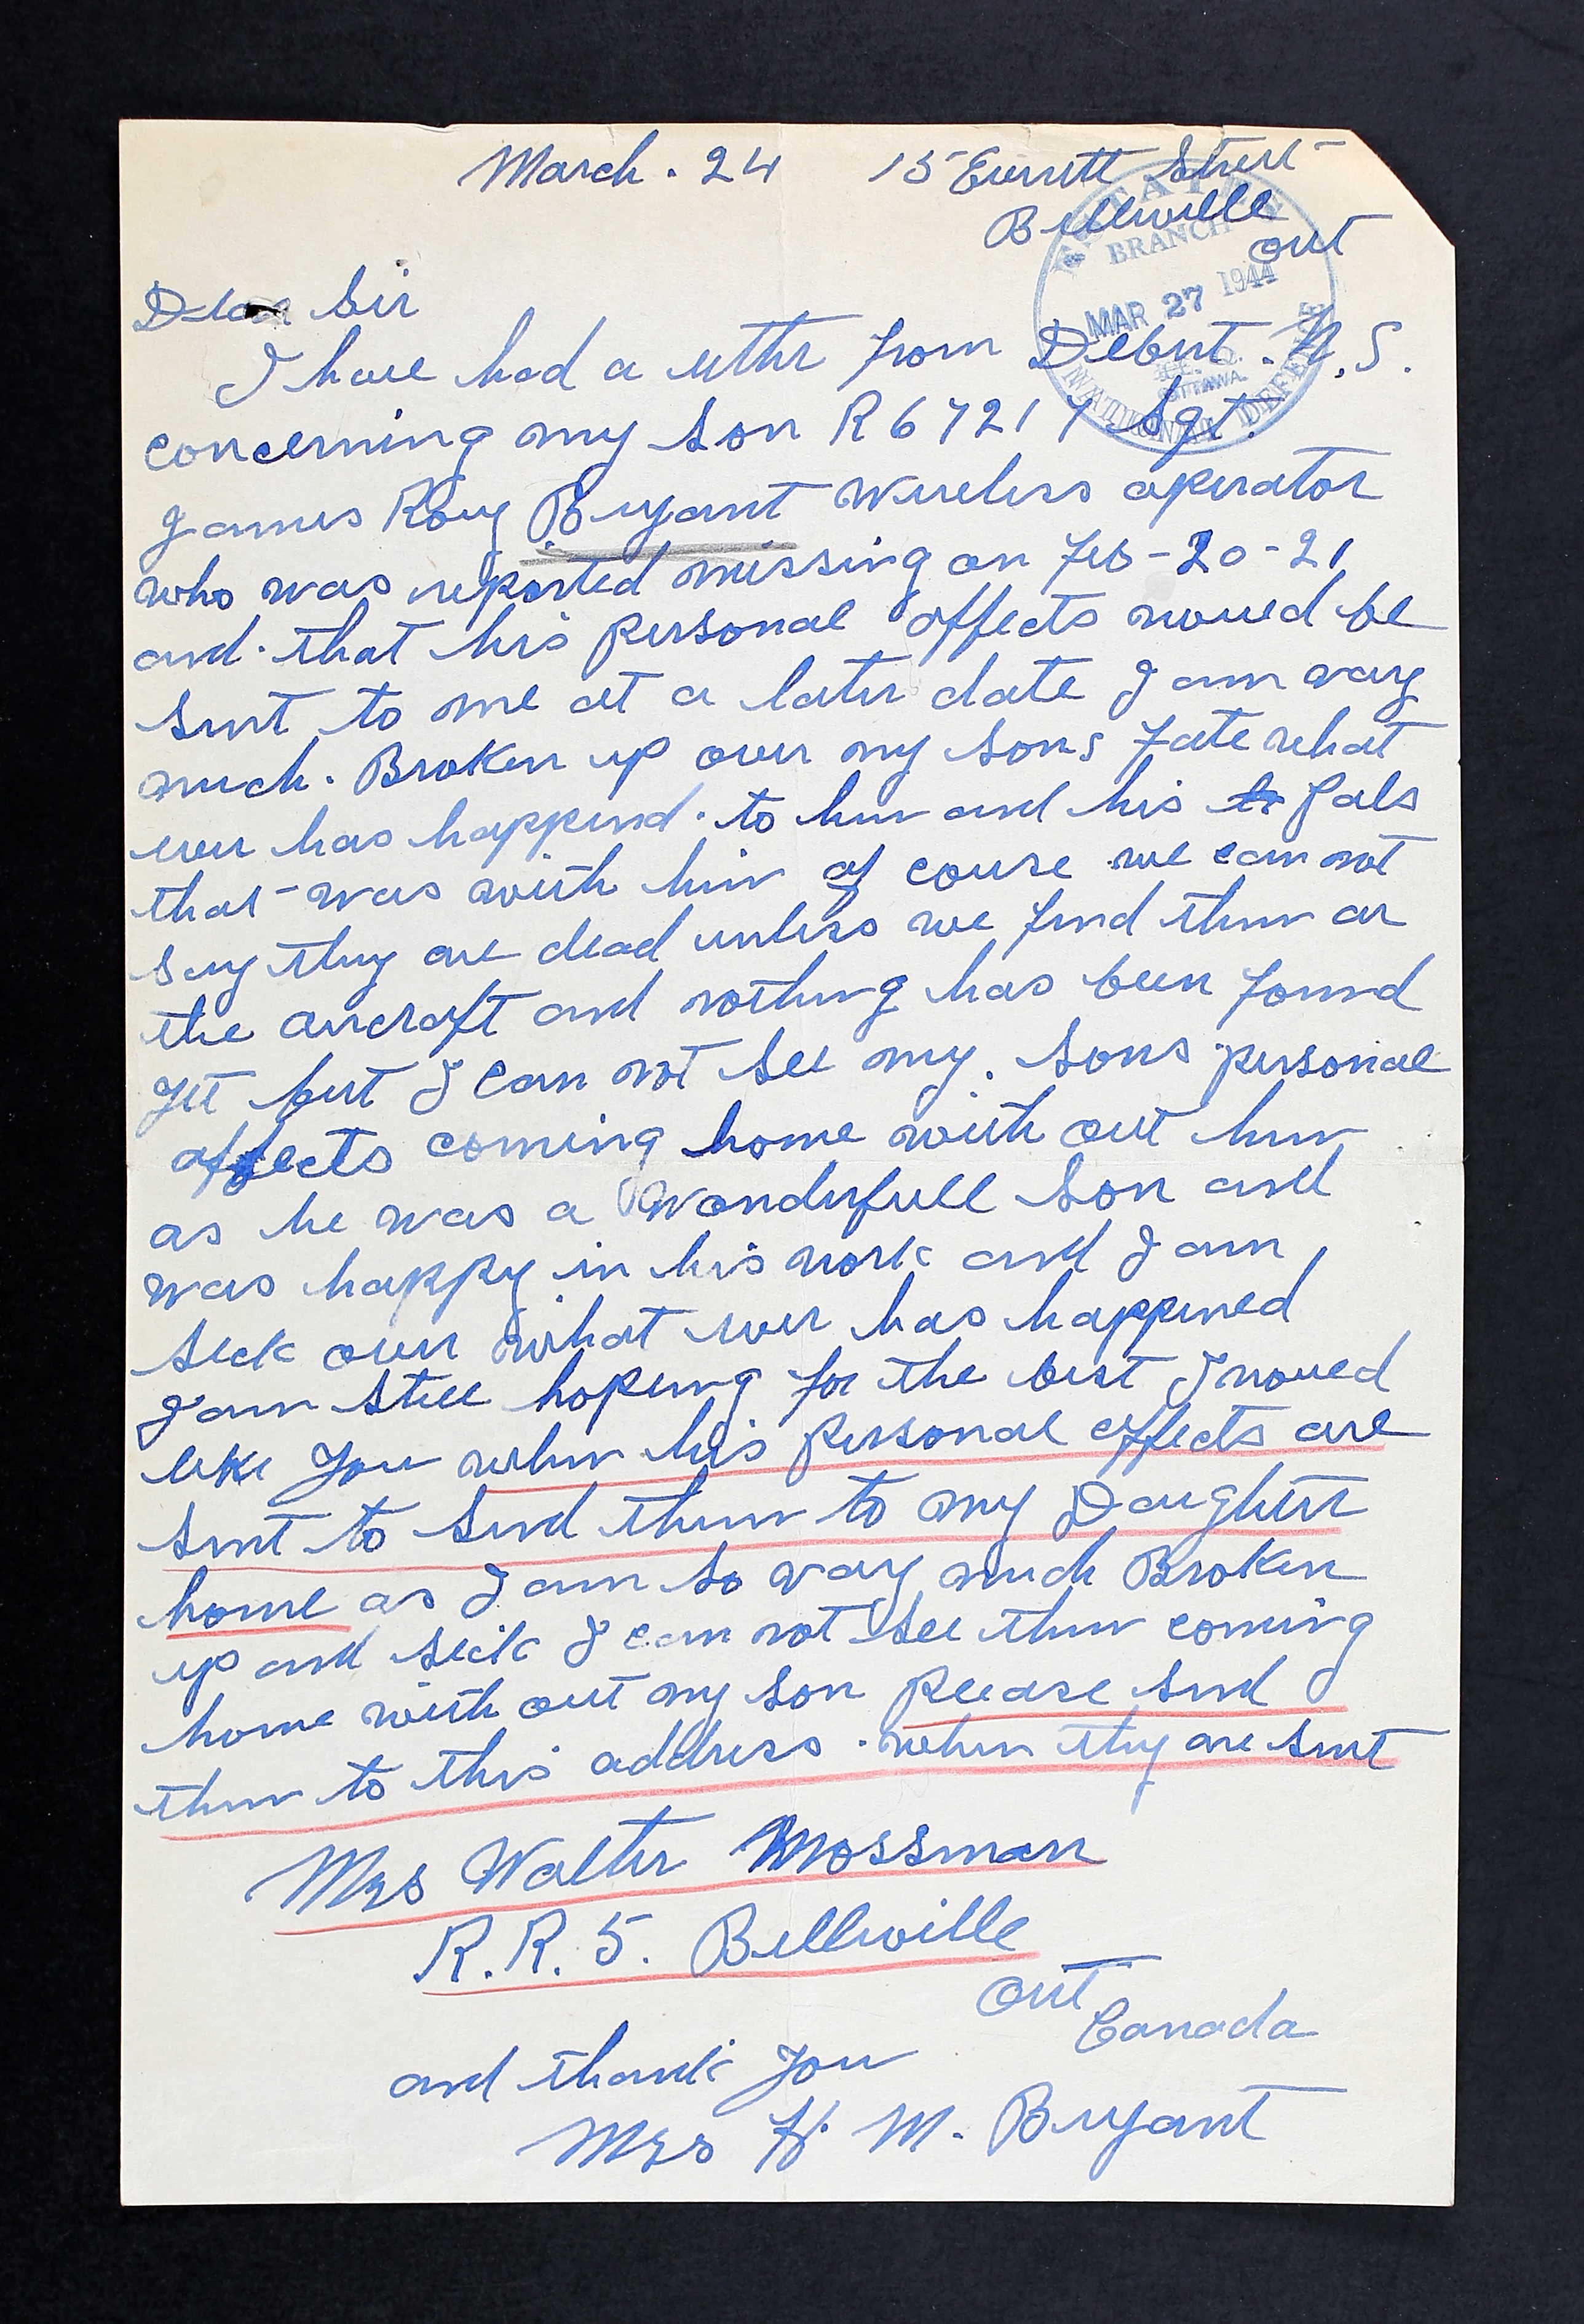 March . 24 15 Everett Street
Belleville
Ont
ESTATES
BRANCH
MAR 27 1944
OTTAWA.
NATIONAL DEFENCE
Dear Sir
I have had a letter from Debert . N.S.
concerning my son R 67217 Sgt.
James Roy Bryant wireless operator
who was reported missing on Feb - 20 - 21
and. that his personal affects would be
sent to me at a later date I am vary
much. Broken up over my sons Fate what
ever has happend. to him and his Pals
that was with him of couse we can not
say they are dead unless we find them or
the aircraft and nothing has been found
yet but I can not see my. sons personal
affects coming home with out him
as he was a Wonderfull son and
was happy in his work and I am
sick over what ever has happened
I am still hopeing for the best I would
like you when his personal effects are
sent to send them to my Daughter
home as I am so vary much Broken
up and sick I can not see them coming
home with out my son please send
them to this address . when they are sent
Mrs Walter Mossman
R.R.5. Belleville
Ont
Canada
and thank you
Mrs H. M. Bryant